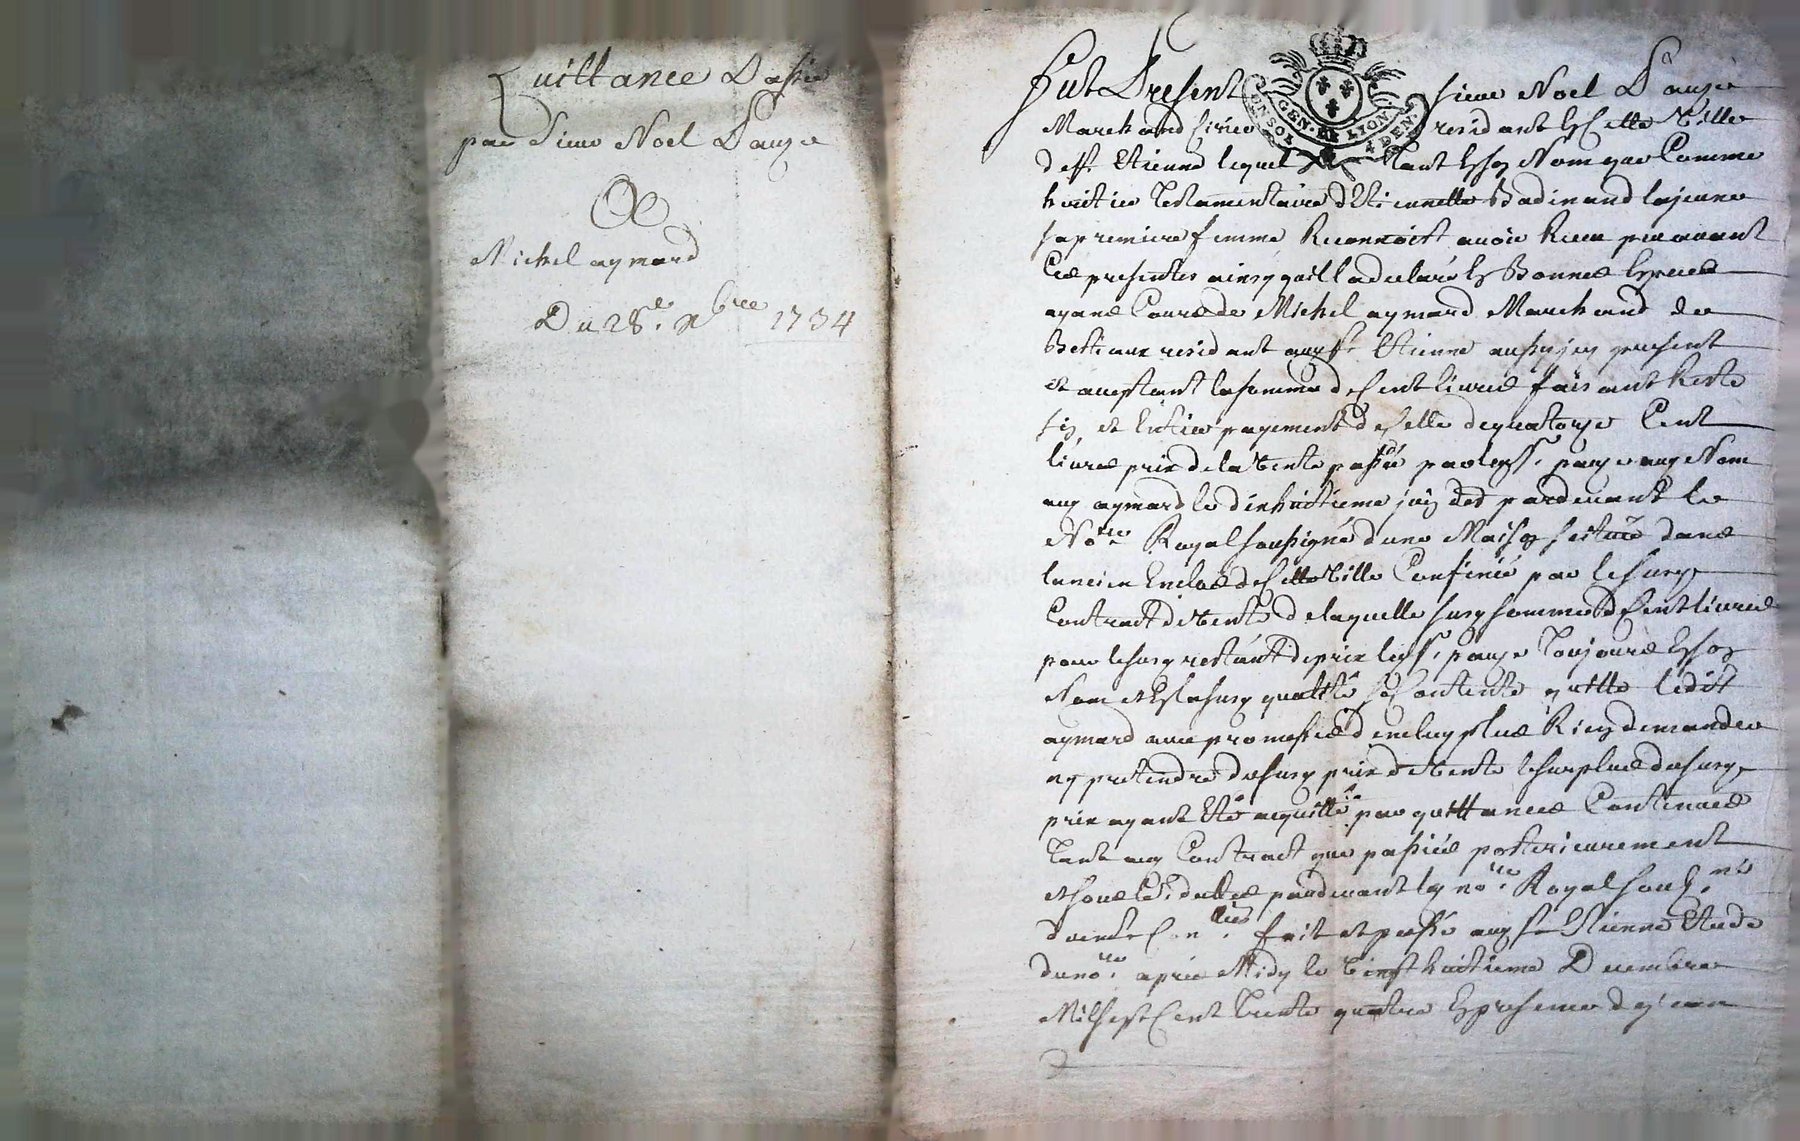 Quittance Passée
par Sieur Noel Pauze
A
Michel aymard
Du 28e. Xbre 1734
Fut Present sieur Noel Pauze
GEN. DE LYON
Marchand Cirier residant En Cette Ville
de St. Etienne lequel tant En son Nom que Comme
heritier Testamentaire d'Etiennette Badinand lajeune
sa premiere femme Reconnoist avoir Receu peu avant
Ces presentes ainsy quil la declaré En Bonnes Especes
ayans Cours de Michel aymard Marchand de
Bestiaux residant audt St. Etienne aussy icy present
et acceptant la somme de Cent livres faisant Reste
fin et Entier payement de Celle de quatorze Cent
livres prix de la Vente passée par ledt Sr. pauze aud Nom
aud aymard le dixhuitieme juin der pardevant le
No.re Royal soussigné dune Maison scituée dans
lancien Enclos de Cette Ville Confinée par le susd
Contract de Vente de laquelle susd somme de Cent livres
pour le susd restant de prix ledt Sr. pauze Toujours En son
Nom et En la susd qualité se Contente quitte ledit
aymard avec promesse de ne luy plus Rien demander
ny pretendre du susd prix de Vente le surplus du susd
prix ayant Eté acquitté par quittances Contenues
Tant aud Contract que passées posterieurement
et sous led. dattes pardevant led no.re Royal souss.né
dont Con.ties fait et passé aud St Etienne Etude
du no.re aprés Midy le Vingt huitieme Decembre
Mil sept Cent Trente quatre En presence de jean